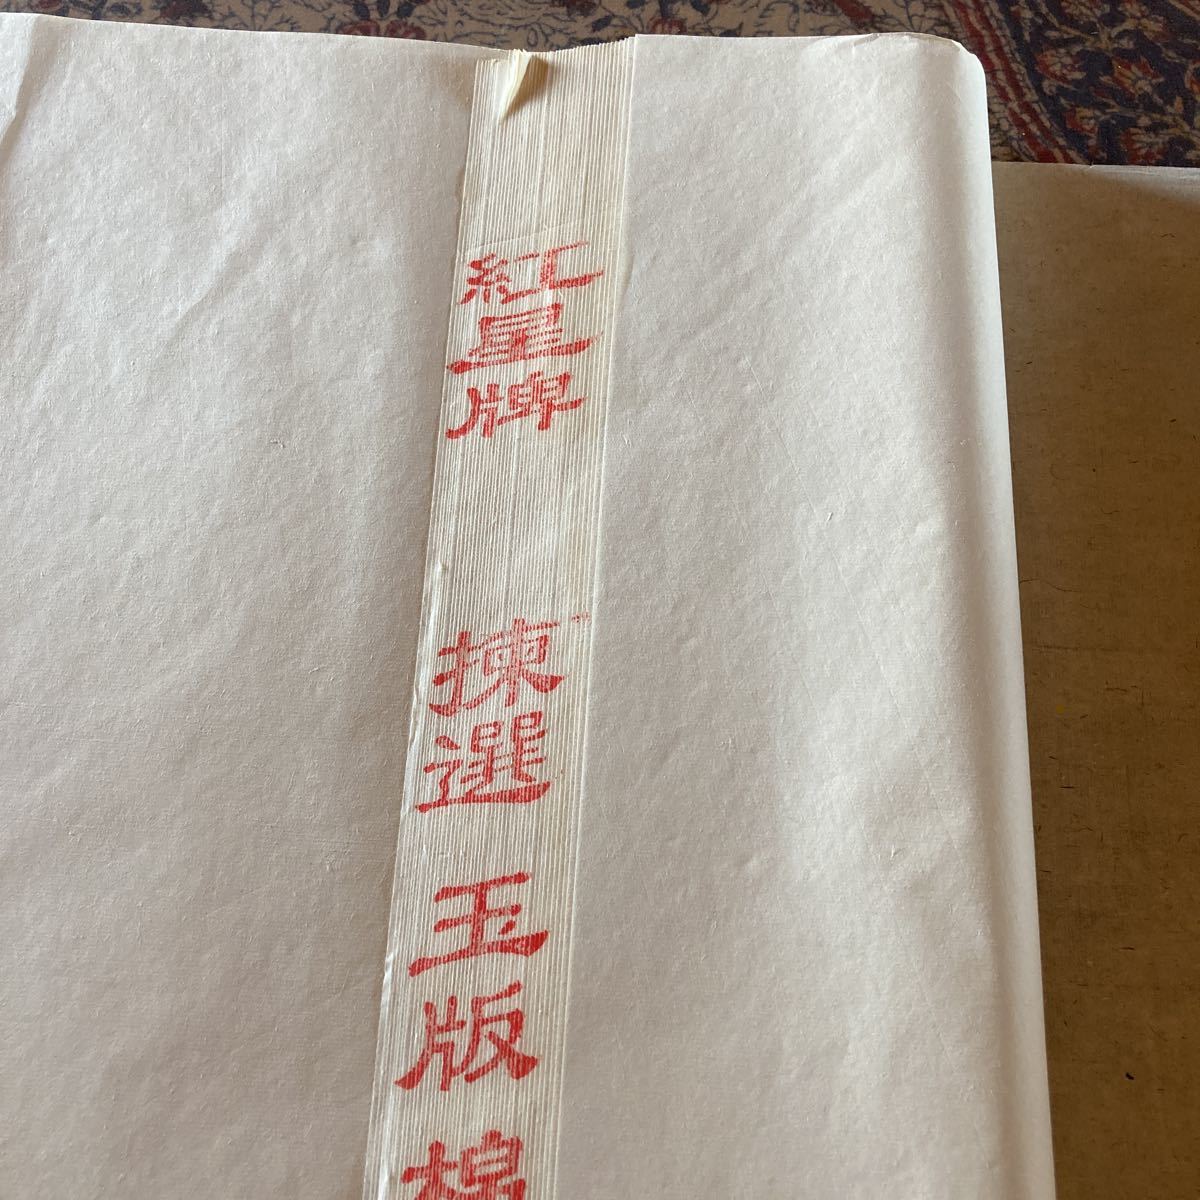 紅星牌 揀選 玉版 棉